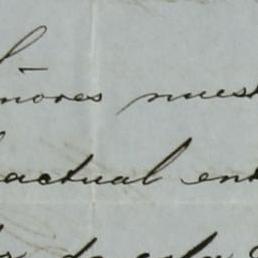 nores nuest
actual ent
de esta